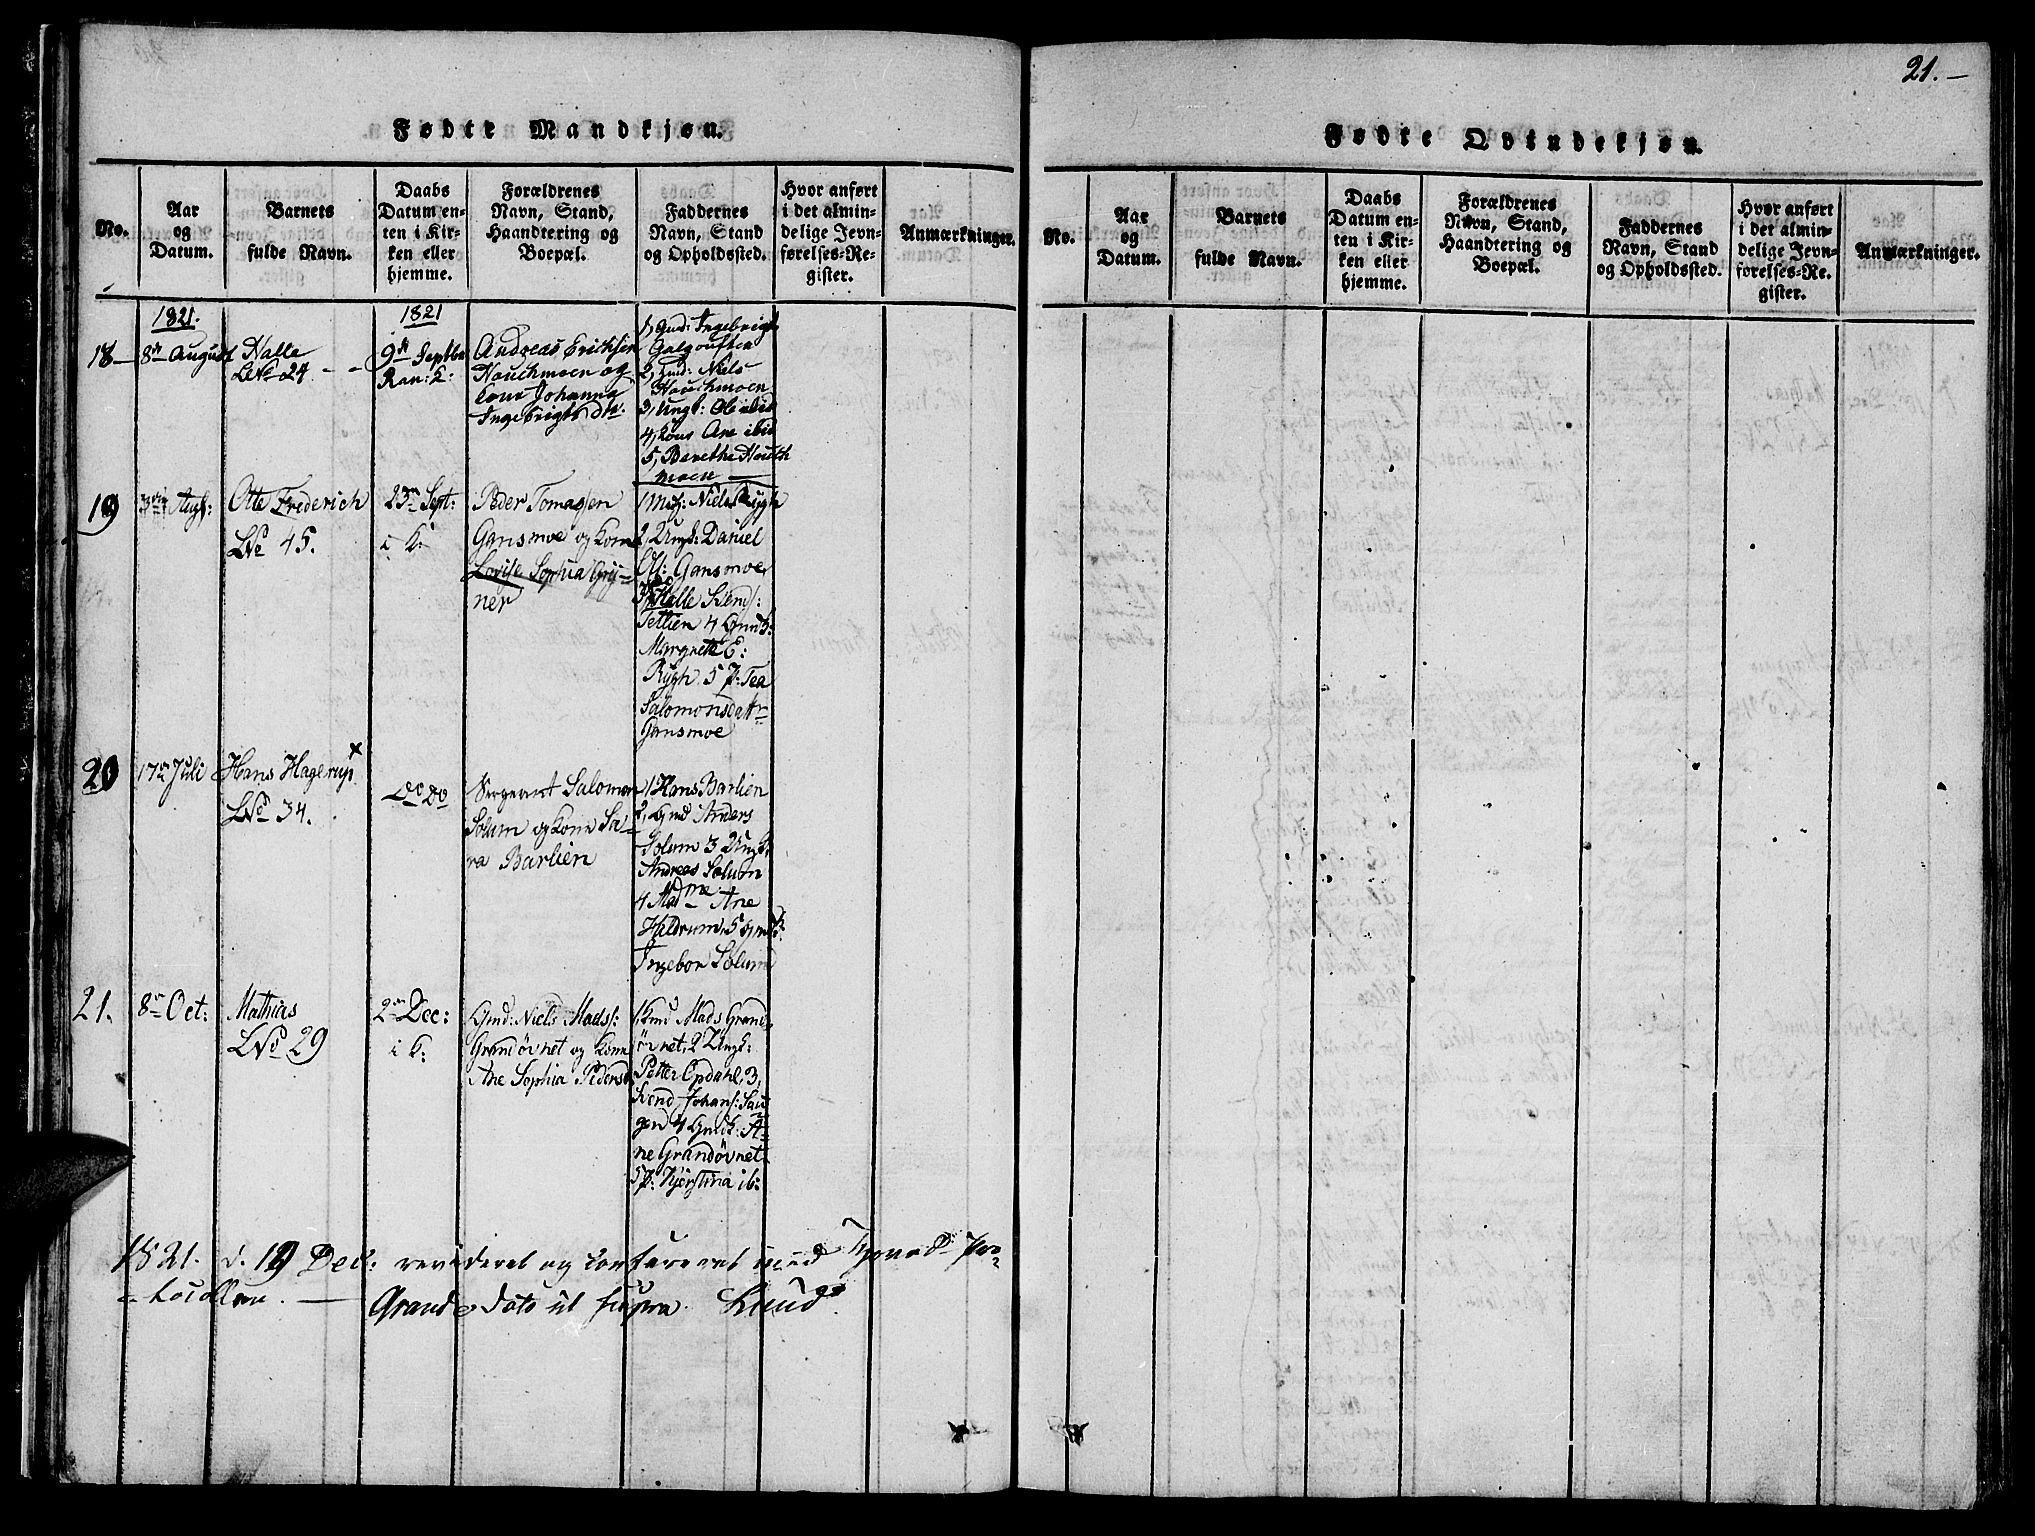 21.—
Fødte Mandkjøn.
No.
Aar
og
Datum.
Barnets
fulde Navn.
Daabs
Datum en-
ten i Kir-
ken eller
hjemme.
Forældrenes
Navn, Stand,
Haandtering og
Boepæl.
Faddernes
Navn, Stand
og Opholdssted.
Hvor anført
i det almin-
delige Jevn-
førelses-Re-
gister.
Anmærkninger.
1821.
18—
8de August
Halle
LNo 24 - -
1821
9de Septbr
Andreas Ericksen
Houchmoen og
Kone Johanna
Ingebrigts Dtr.
1, Gmd: Ingebrigt
Galgouften
2, Gmd: Niels
Houchmoen
3, Ungk: Ole ibid
4, Kone Ane ibid
5, Berethe Houch
moen
19
Aug:
Otte Frederich
LNo 45.
23de Sept:
i K:
Peder Tomassen
Gansmoe og Kone
Lovise Sophia Gry-
ner
Niels Rygh
2, Ungk: Daniel
Gansmoe
3, Halle Svends:
Tettien 4 Gmdk:
Margrete E:
Rygh. 5 P: Tea
Salomonsdattr
Gansmoe
20
17de Juli
Hans Hagerup x
LNo 34.
Do Do
Sergeant Salomon
Solum og Kone Sa-
ra Barlien
1 Hans Barlien
2, Gmd Anders
Solum 3 Ungk:
Andreas Solum
4 Madme Ane
Hildrum, 5 Gmdk:
Ingebor Solum
21.
8de Oct:
Mathias
LNo 29
2den Dec:
i K:
Gmd: Niels Mads:
Grandøvnet og Kone
Ane Sophia Pedersd
1, Gmd Mads Grand-
øvnet, 2 Ungk:
Petter Opdahl, 3,
Svend Johans: Sau-
gen 4 Gmdk: A-
ne Grandøvnet
5 P: Kjerstina ib:
1821. d. 19 Dec: revideret og confereret med Pro-
tocollen. — Grande Dato ut supra.
Fødte Qvindekjøn.
No.
Aar
og
Datum.
Barnets
fulde Navn.
Daabs
Datum en-
ten i Kir-
ken eller
hjemme.
Forældrenes
Navn, Stand,
Haandtering og
Boepæl.
Faddernes
Navn, Stand
og Opholdssted.
Hvor anført
i det almin-
delige Jevn-
førelses-Re-
gister.
Anmærkninger.